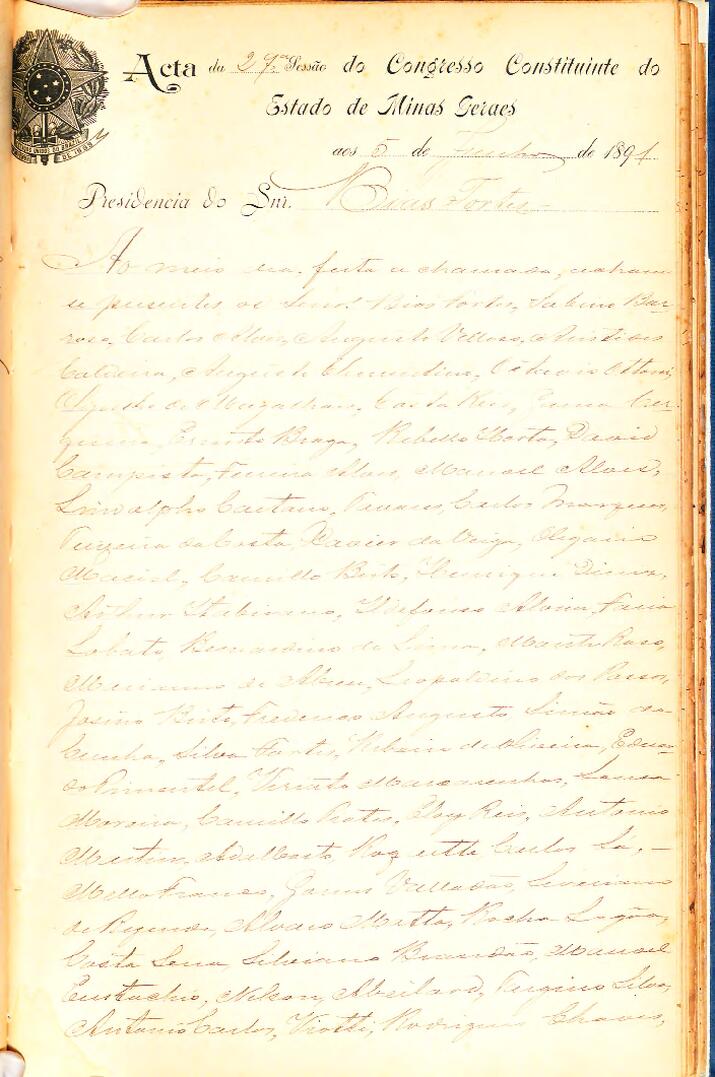 Acta da 29ª Sessão do Congresso Constituinte do
Estado de Minas Geraes
aos 5 de Junho de 1891
Presidencia do Snr. Bias Fortes
Ao meio dia, feita a chamada, acham
se presentes os Senrs. Bias Fortes, Sabino Bar-
roso, Carlos Alves, Augusto Velloso, Aristides
Caldeira, Augusto Clementino, Octavio Ottoni,
Olyntho de Magalhães, Costa Reis, Gama Cer-
queira, Ernesto Braga, Rebello Horta, David
Campista, Ferreira Alves, Manoel Alves,
Lindolpho Caetano, Tavares, Carlos Marques,
Teixeira da Costa, Xavier da Veiga, Olegario
Maciel, Camillo Brito, Henrique Diniz,
Arthur Itabirano, Ildefonso Alvim, Faria
Lobato, Bernardino de Lima, Monte Raso,
Marianno de Abreu, Leopoldino dos Passos,
Josino Brito, Frederico Augusto, Simão da
Cunha, Silva Fortes, Ribeiro de Oliveira, Eduar-
do Pimentel, Viriato Mascarenhas,
Moreira, Camillo Prates, Eloy Reis, Antonio
Martins, Adalberto, Carlos Sá,
Mello Franco, Gomes Valladão, Severiano
de Rezende, Alvaro Matta, Rocha Lagôa,
Costa Sena, Silviano Brandão, Manoel
Eustachio, Nelson, Abeilard, Eugenio Silva,
Antonio Carlos, Viotti, Rodrigues Chaves,